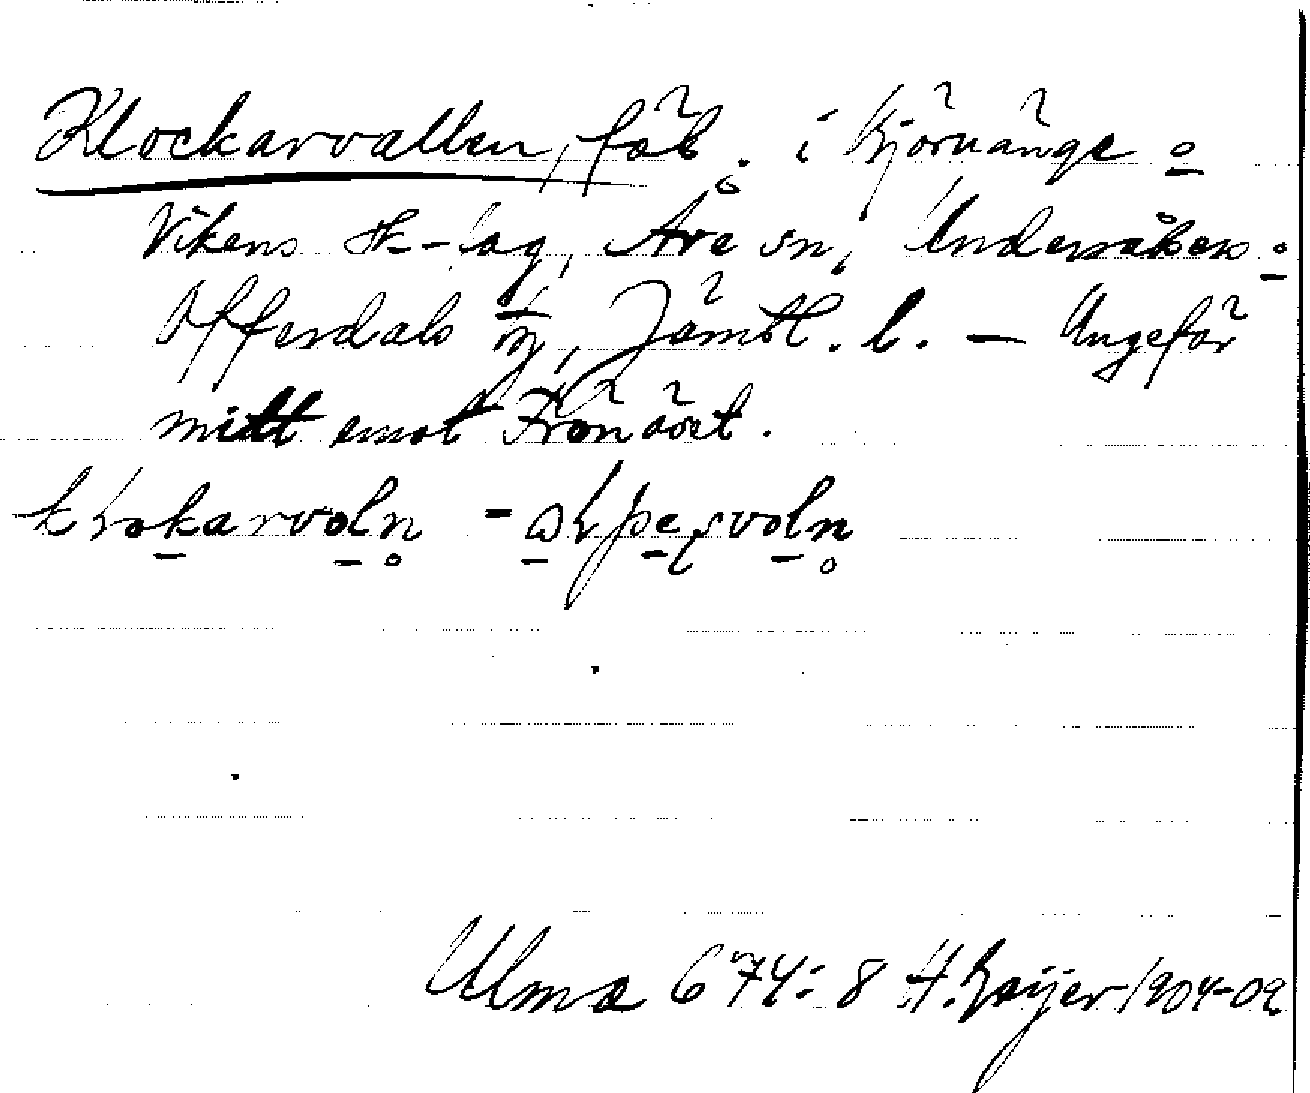 Klockarvallen, fäb. i Björnänge o
Vikens sk-lag, Åre sn, Undersåkers o
Offerdals tg, Jämtl. l. — Ungefär
mitt emot Frönäset.
klokarvoln -
Ulma 674:8 H. Geijer 1904-09